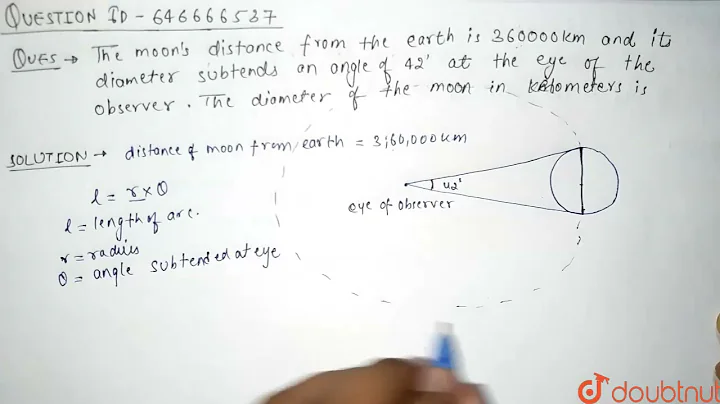 QUESTION ID - 646666537
QUES → The moon's distance from the earth is 360000km and its
diameter subtends an angle of 42' at the eye of the
observer. The diameter of the moon in kelometers is
SOLUTION → distance of moon from earth = 3,60,000km
l = r × θ
l = length of arc.
r = radius
θ = angle subtended at eye
42'
eye of observer
doubtnut